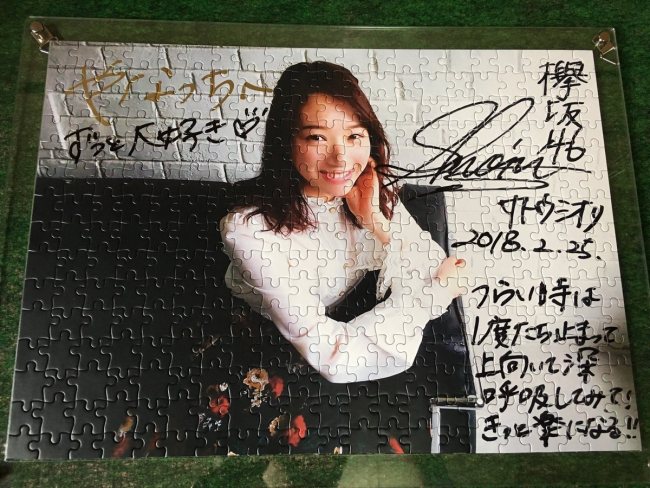 やなっちへ
ずっと大好き♡
欅坂46
サトウシオリ
2018.2.25.
つらい時は
1度たち止まって
上向いて深
呼吸してみて!
きっと楽になる!!